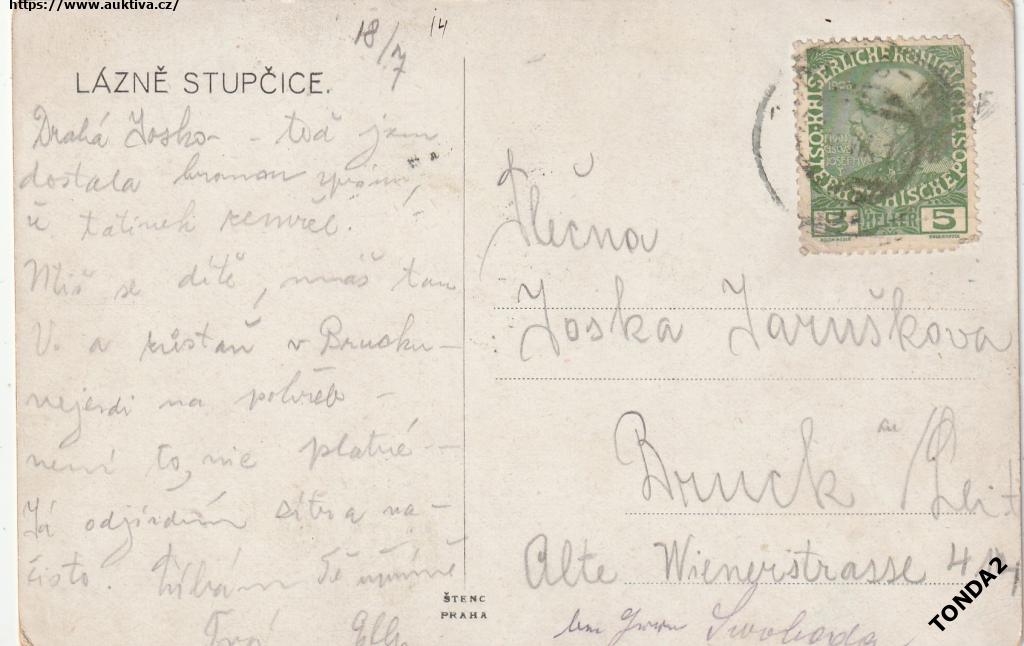 https://www.auktiva.cz/
18/7 14
LÁZNĚ STUPČICE.
Drahá Josko - teď jsem
dostala hroznou zprávu,
tatínek zemřel.
Měj se dítě, máš tam
V. a zůstaň v Brucku -
nejezdi na pohřeb -
není to nic platné -
Já odjíždím zítra na-
čisto. Líbám Tě upřímně
Tvá
ŠTENC
PRAHA
KAISERLICHE KÖNIGLICHE ÖSTERREICHISCHE POST
5 HELLER 5
Slečna
Joska Jaruškova
Bruck a/Leit
Alte Wienerstrasse 4
Swoboda
TONDA2